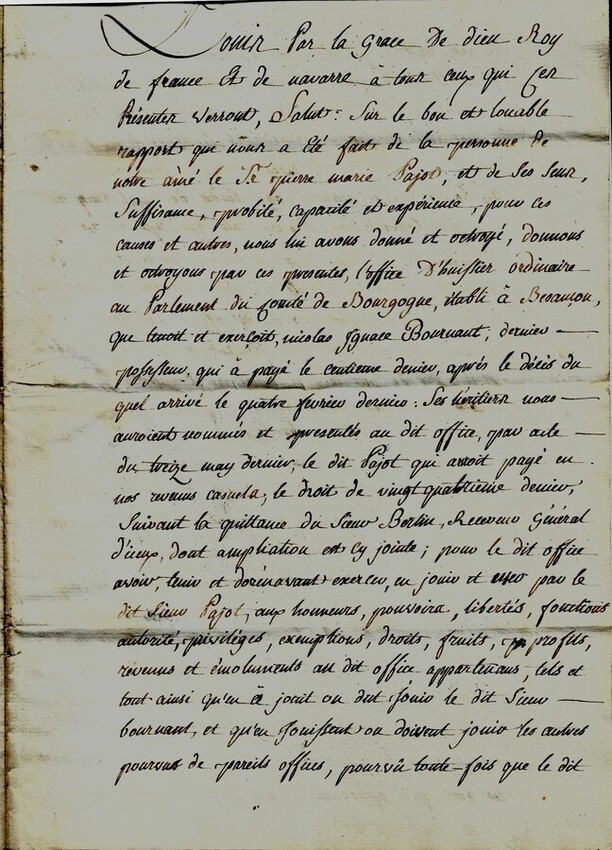 Louis Par la Grace De dieu Roy
de france Et de navarre à tous ceux qui ces
Présentes verront, Salut: Sur le bon et louable
rapport qui nous a été fait de la personne De
notre amé le Sr. pierre marie Pajot, et de Ses Sens,
Suffisance, probité, capacité et expérience, pour ces
causes et autres, nous lui avons donné et octroyé, donnons
et octroyons par ces presentes, l'office D'huissier ordinaire
au Parlement du Comté de Bourgogne, établi à Besançon,
que tenoit et exerçoit, nicolas Ignace Bournant, dernier
possesseur, qui à payé le centieme denier, après le décès du
quel arrivé le quatre février dernier: Ses héritiers nous
auroient nommés et presentés au dit office, par acte
du treize may dernier, le dit Pajot qui auroit payé en
nos revenus casuels, le droit de vingt quatrieme denier,
Suivant la quittance du Sieur Bertin, Receveur Général
d'iceux, dont ampliation est cy jointe; pour le dit office
avoir, tenir et dorénavant exercer, en jouir et user par le
dit Sieur Pajot, aux honneurs, pouvoirs, libertés, fonctions
autorité, privilèges, exemptions, droits, fruits, profits,
revenus et émoluments au dit office appartenans, tels et
tout ainsi qu'en à jouit ou dut jouir le dit Sieur
bournant, et qu'en Jouissent ou doivent jouir les autres
pourvus de pareils offices, pourvû toute-fois que le dit